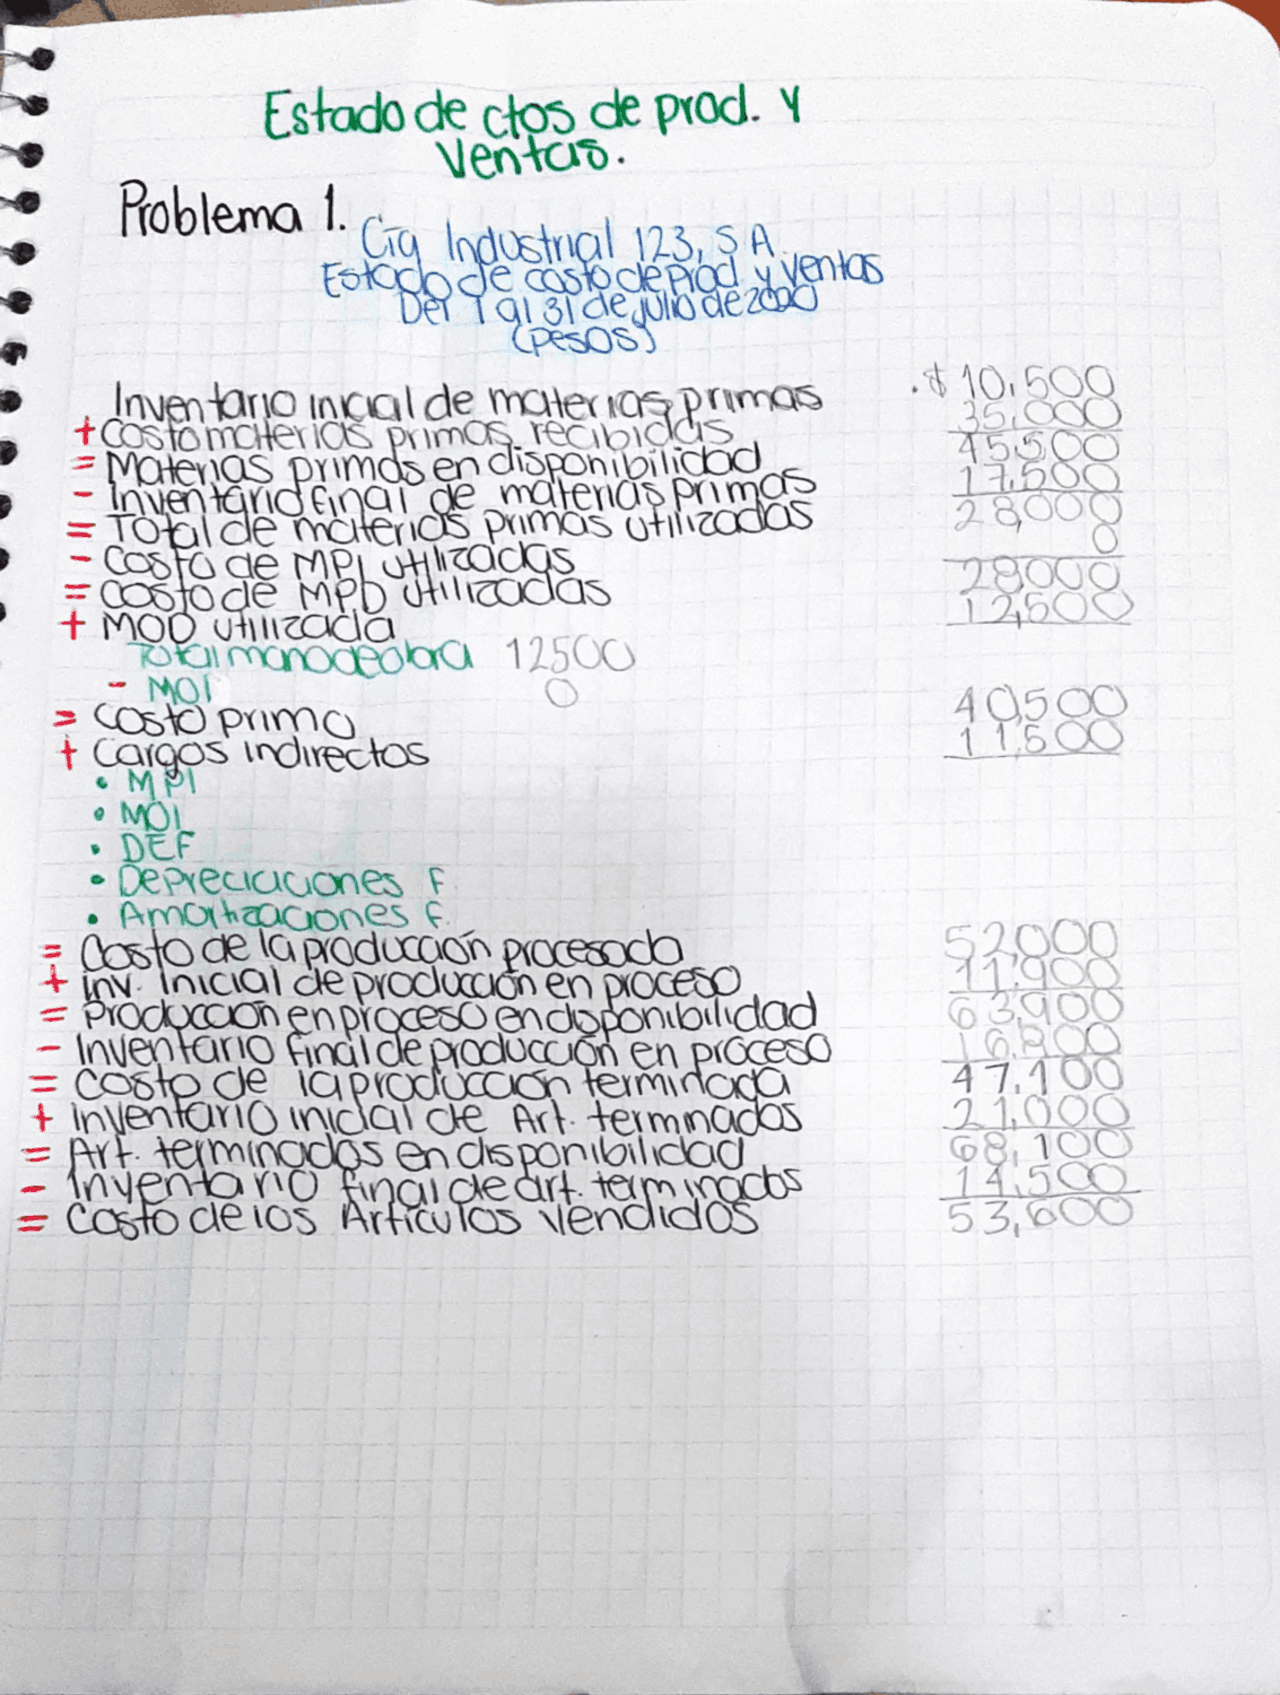 Estado de ctos de prod. y
Ventas.
Problema 1.
Cía Industrial 123, S A.
Estado de costo de prod. y ventas
Del 1 al 31 de julio de 2020
(pesos)
Inventario inicial de materias primas . $ 10,500
+ Costo materias primas recibidas 35,000
= Materias primas en disponibilidad 45,500
- Inventario final de materias primas 17,500
= Total de materias primas utilizadas 28,000
- Costo de MPI utilizadas 0
= Costo de MPD utilizadas 28000
+ MOD utilizada 12,500
Total mano de obra 12500
- MOI 0
= Costo primo 40,500
+ Cargos indirectos 11,500
• MPI
• MOI
• DEF
• Depreciaciones F.
• Amortizaciones F.
= Costo de la producción procesada 52000
+ Inv. Inicial de producción en proceso 11,900
= Producción en proceso en disponibilidad 63,900
- Inventario final de producción en proceso 16,800
= Costo de la producción terminada 47,100
+ Inventario inicial de Art. terminados 21,000
= Art. terminados en disponibilidad 68,100
- Inventario final de art. terminados 14,500
= Costo de los Artículos Vendidos 53,600